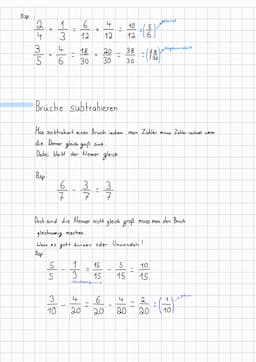 Bsp:
2/4 + 1/3 = 6/12 + 4/12 = 10/12 = (5/6) gekürzt
3/5 + 4/6 = 18/30 + 20/30 = 38/30 = (1 8/30) umgewandelt
Brüche subtrahieren
Man subtrahiert einen Bruch indem man Zähler minus Zähler rechnet wenn
die Nenner gleich groß sind.
Dabei bleibt der Nenner gleich
Bsp:
6/7 - 3/7 = 3/7
Doch sind die Nenner nicht gleich groß muss man den Bruch
gleichnamig machen.
Wenn es geht kürzen oder Umwandeln!
Bsp:
5/5 - 1/3 = 15/15 - 5/15 = 10/15
3/10 - 4/20 = 6/20 - 4/20 = 2/20 = (1/10)